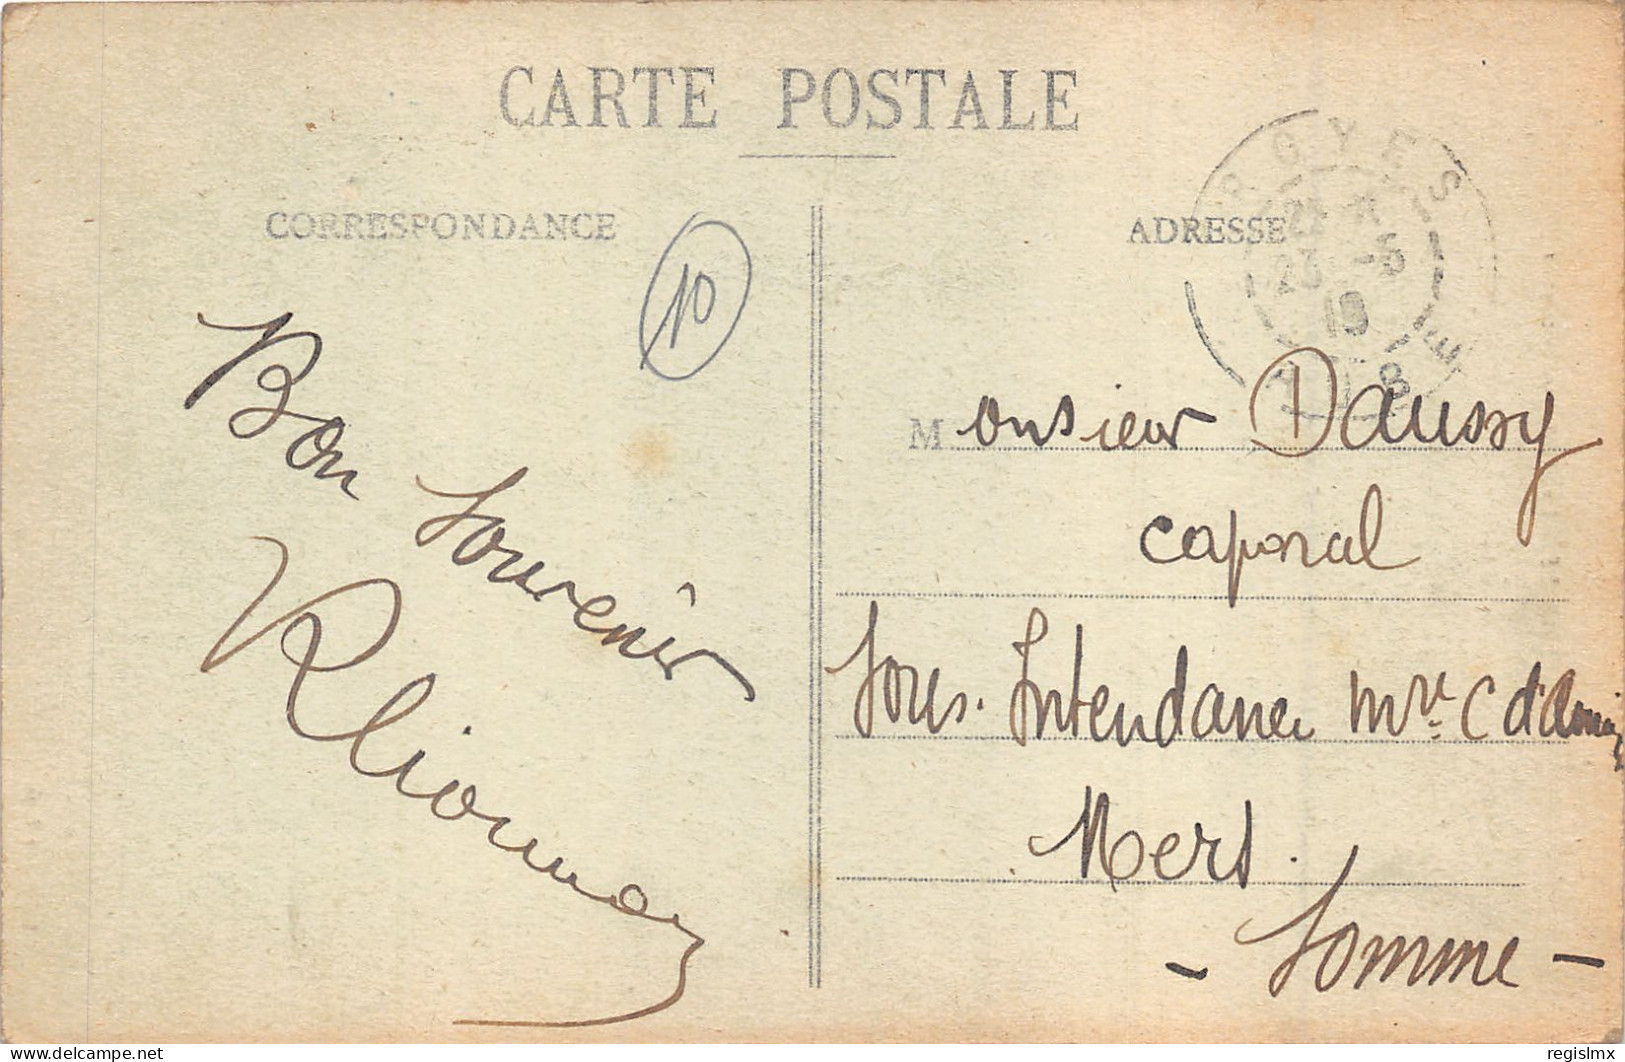 CARTE POSTALE
CORRESPONDANCE
10
Bon
Souvenir
ADRESSE
RGYES
23 -5
19
Monsieur Daussy
caporal
Sous-Intendance Mre C d'Amiens
Mers.
- Somme -
delcampe.net
regislmx